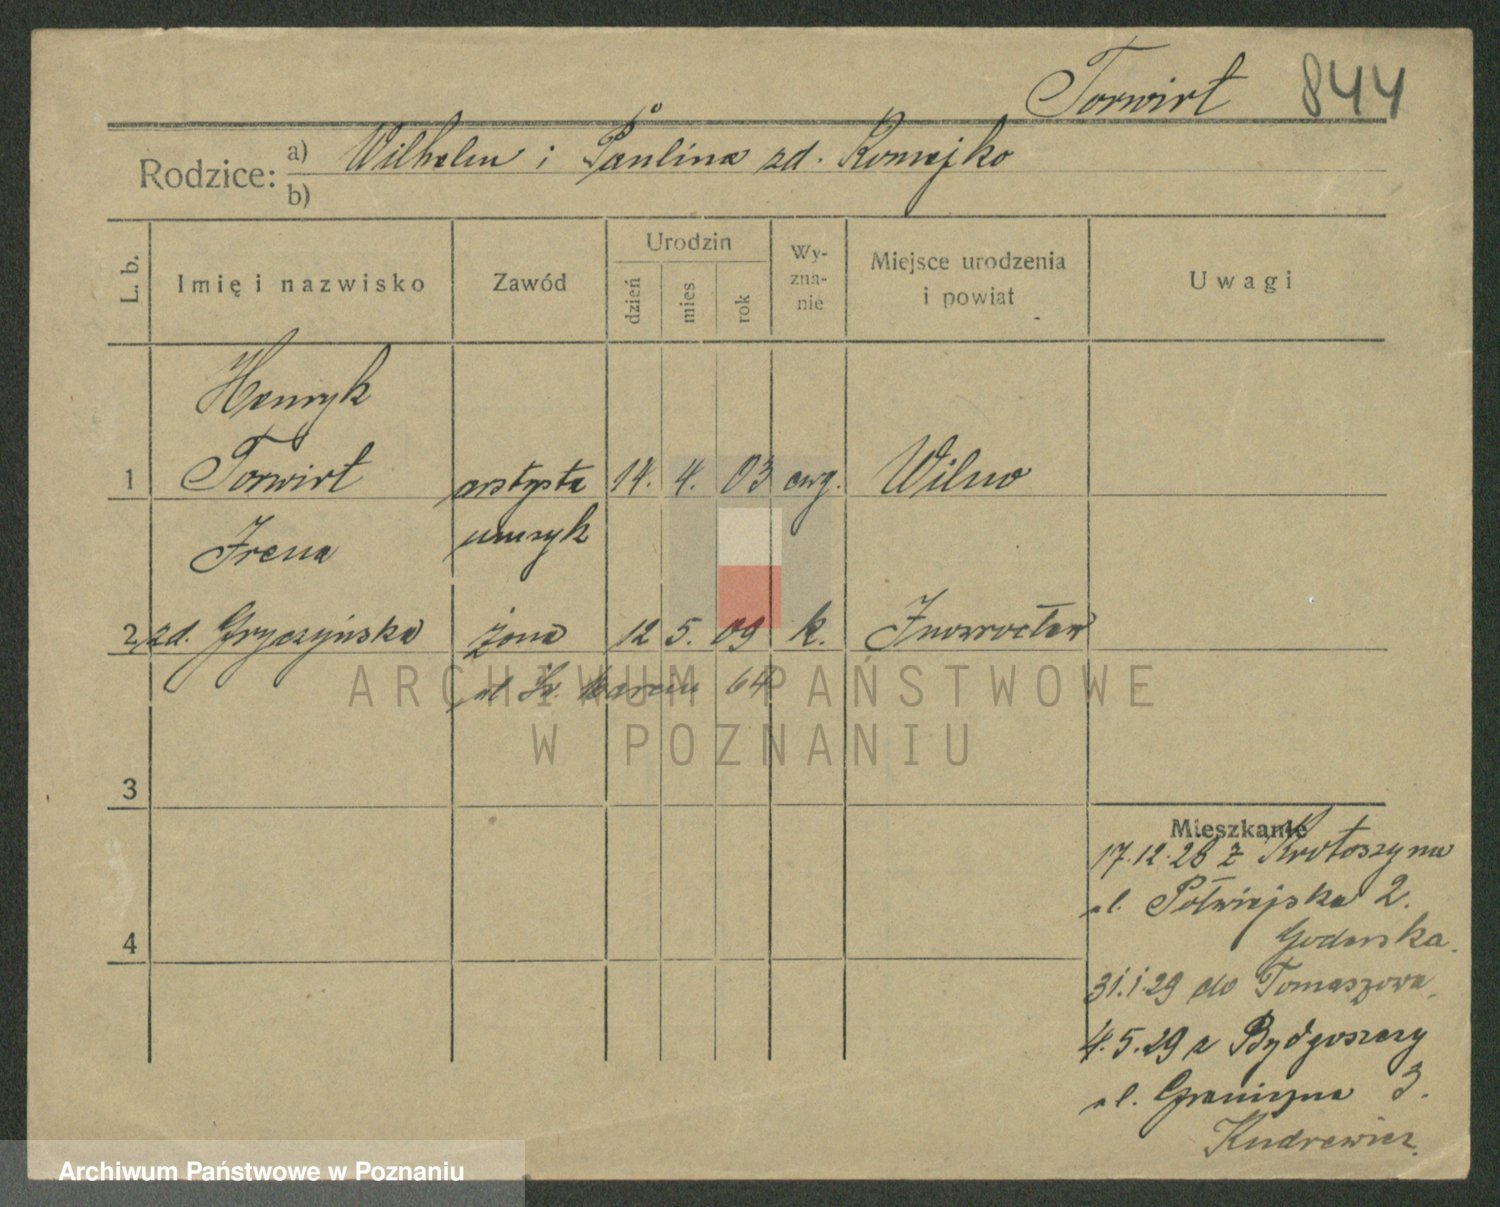 Torwirt 844
Rodzice: a) Wilhelm i Paulina zd. Romejko
b)
L. b. Imię i nazwisko Zawód Urodzin dzień mies rok Wyznanie Miejsce urodzenia i powiat Uwagi
Henryk
1 Torwirt artysta 14. 4. 03 ewg. Wilno
Irena muzyk
2 zd. Gryczyńska żona 12 5. 09 k. Inowrocław
ul Św. Marcin 64
ARCHIWUM PAŃSTWOWE
W POZNANIU
3
Mieszkanie
17.12.28 z Krotoszyna
ul. Półwiejska 2.
4
31.1.29 do Tomaszowa
4.5.29 z Bydgoszczy
ul. Graniczna 3.
Kudrewicz.
Archiwum Państwowe w Poznaniu